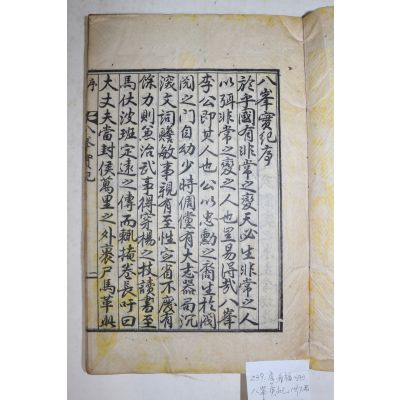 八峯實紀序
於乎國有非常之變天必生非常之人
以弭非常之變之人也豈易得哉八峯
李公卽其人也公以忠勳之裔生於閥
閱之門自幼少時倜儻有大志器而沉
深文詞贍敏事親有至性定省不廢有
餘力則兼治武事得穿楊之技讀書至
馬伏波班定遠之傳而輒掩卷長吁曰
大丈夫當封侯萬里之外裹尸馬革此
序 八峯實紀 一
239.
八峯實紀